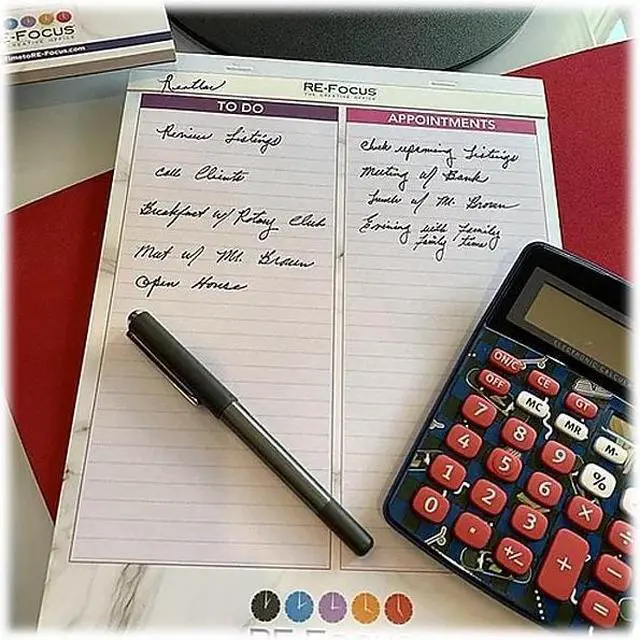 E-FOCUS
CREATIVE OFFICE
TimetoRE-Focus.com
Realtor
RE-FOCUS
THE CREATIVE OFFICE
TO DO
Review Listings
Call Clients
Breakfast w/ Rotary Club
Meet w/ Mr. Brown
Open House
APPOINTMENTS
Check upcoming Listings
Meeting w/ Bank
Lunch w/ Mr. Brown
Evening with family
family time
ELECTRONIC CALCUL
ON/C
CE
GT
OFF
MC
MR
M-
7
8
9
%
4
5
6
×
÷
1
2
3
−
0
.
+/-
+
=
RE-FOCUS